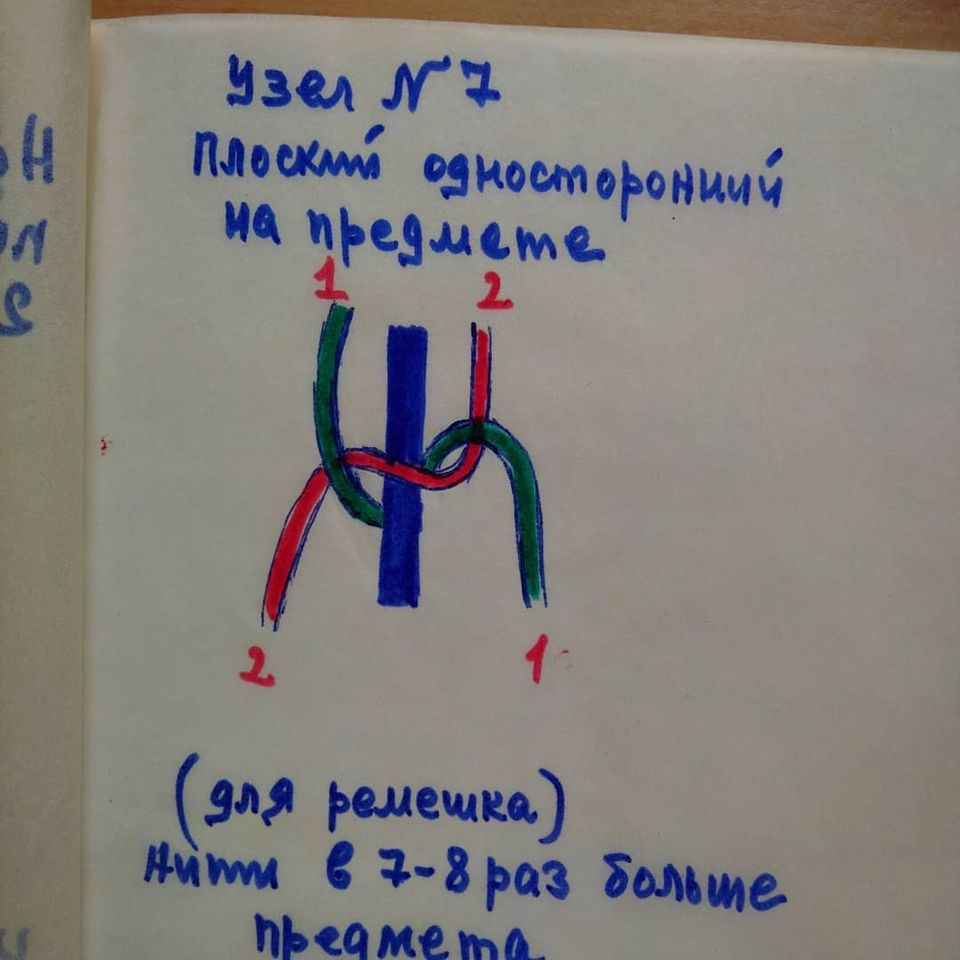 Узел N 7
Плоский односторонний
на предмете
1 2
2 1
(для ремешка)
Нити в 7-8 раз больше
предмета